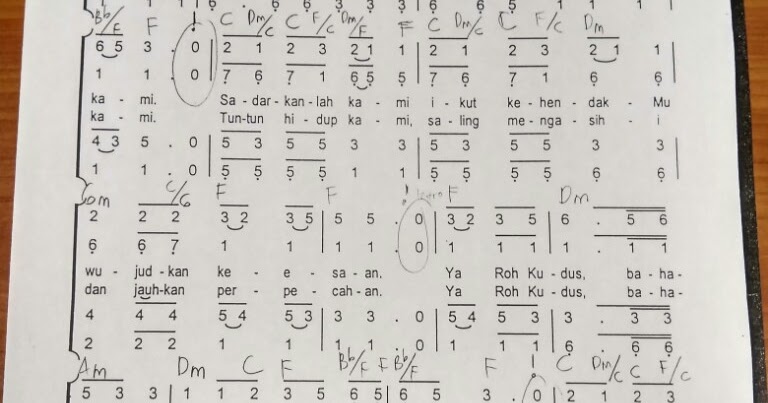 Bb/F F ! C Dm/C C F/C Dm/F F C Dm/C C F/C Dm
6 5 3 . 0 | 2 1 2 3 2 1 3 | 2 1 2 3 2 1 1
1 1 . 0 | 7 6 7 1 6 5 5 | 7 6 7 1 6 6
ka - mi. Sa - dar - kan - lah ka - mi i - kut ke - hen - dak - Mu
ka - mi. Tun-tun hi - dup ka - mi, sa - ling me - nga - sih - i
4 3 5 . 0 | 5 3 5 5 3 3 | 5 3 5 5 3 3
1 1 . 0 | 5 5 5 5 1 1 | 5 5 5 5 6 6
C/G F F ! F Dm
2 2 2 3 2 3 5 | 5 5 . 0 | 3 2 3 5 | 6 . 5 6
6 6 7 1 1 | 1 1 . 0 | 1 1 1 | 1 . 1 1
wu - jud - kan ke - e - sa - an. Ya Roh Ku - dus, ba - ha -
dan jauh-kan per - pe - cah - an. Ya Roh Ku - dus, ba - ha -
4 4 4 5 4 5 3 | 3 3 . 0 | 5 4 5 3 | 3 . 3 3
2 2 2 1 1 | 1 1 . 0 | 1 1 1 | 6 . 6 6
Am Dm C F Bb/F F Bb/F F ! C Dm/C C F/C
5 3 3 | 1 1 2 3 5 6 5 | 6 5 3 . 0 | 2 1 2 3